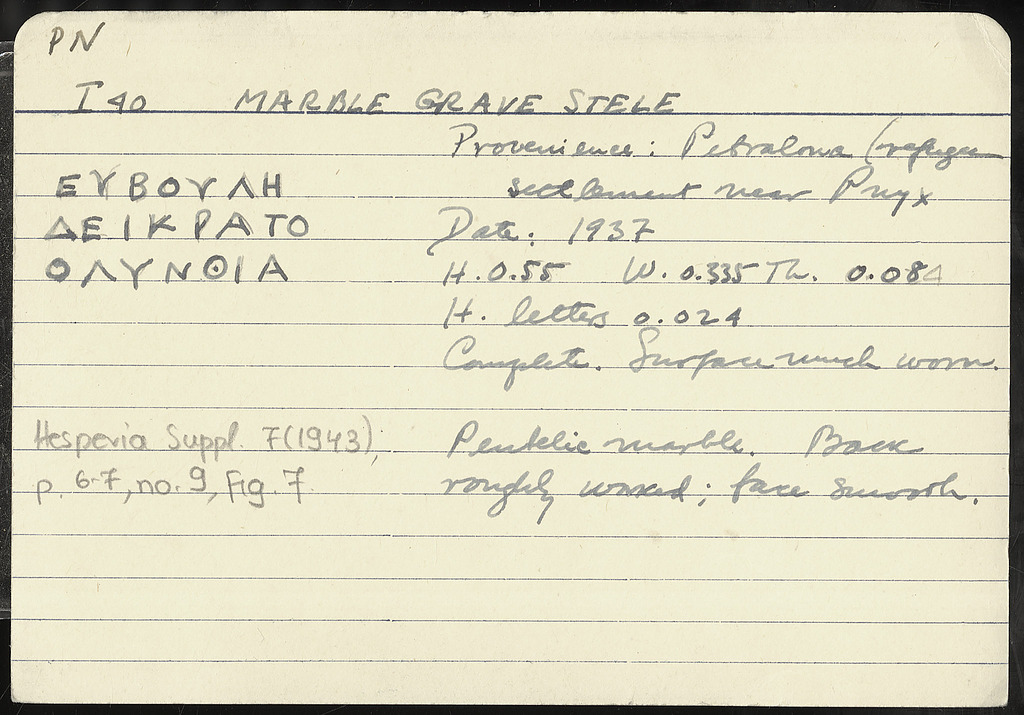 PN
I 40 MARBLE GRAVE STELE
Provenience: Petralona (refugee
settlement near Pnyx
ΕΥΒΟΥΛΗ
ΔΕΙΚΡΑΤΟ
ΟΛΥΝΘΙΑ
Date: 1937
H. 0.55 W. 0.335 Th. 0.084
H. letters 0.024
Complete. Surface much worn.
Hesperia Suppl. 7(1943),
p. 6-7, no. 9, Fig. 7
Pentelic marble. Back
roughly worked; face smooth.